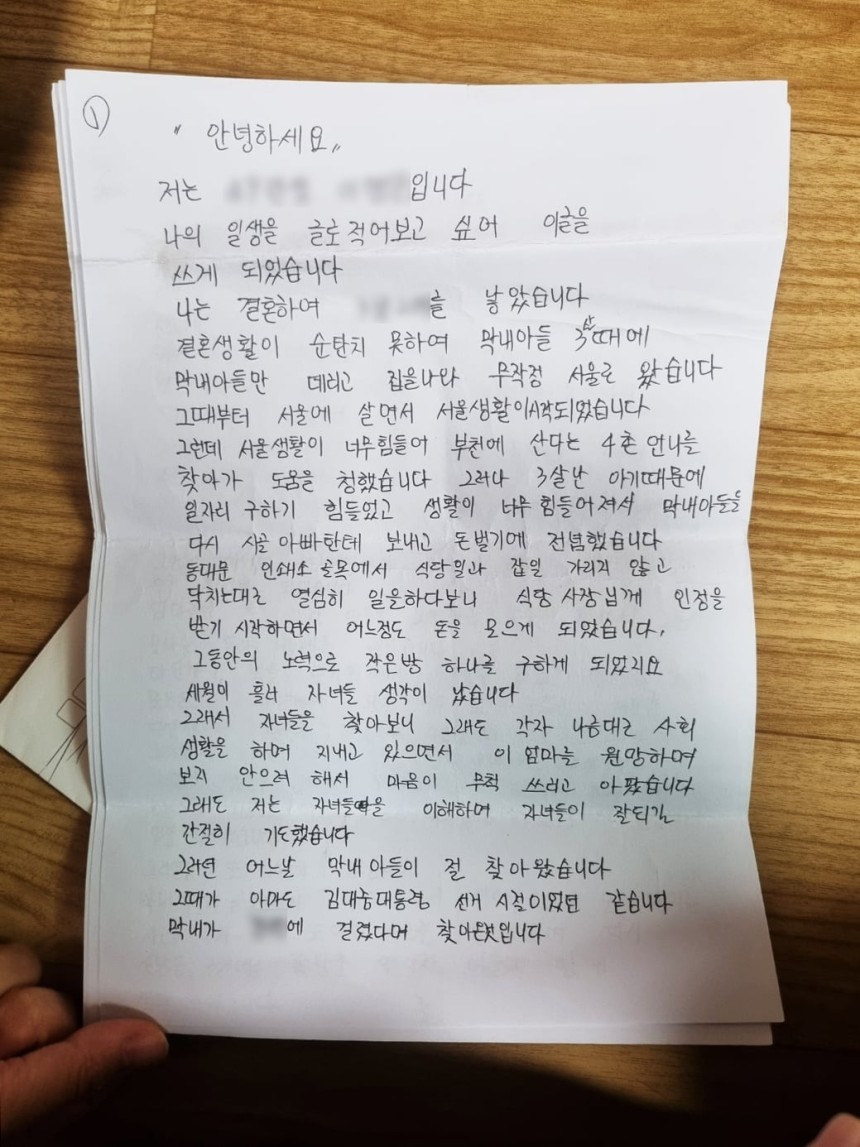 ①
" 안녕하세요 "
저는 입니다
나의 일생을 글로 적어보고 싶어 이글을
쓰게 되었습니다
나는 결혼하여 를 낳았습니다
결혼생활이 순탄치 못하여 막내아들 3살때에
막내아들만 데리고 집을나와 무작정 서울로 왔습니다
그때부터 서울에 살면서 서울생활이시작되었습니다
그런데 서울생활이 너무힘들어 부천에 산다는 4촌 언니를
찾아가 도움을 청했습니다 그러나 3살난 아기때문에
일자리 구하기 힘들었고 생활이 너무 힘들어져서 막내아들을
다시 시골 아빠한테 보내고 돈벌기에 전념했습니다
동대문 인쇄소 골목에서 식당일과 잡일 가리지 않고
닥치는대로 열심히 일을하다보니 식당 사장님께 인정을
받기 시작하면서 어느정도 돈을 모으게 되었습니다.
그동안의 노력으로 작은방 하나를 구하게 되었지요
세월이 흘러 자녀들 생각이 났습니다
그래서 자녀들을 찾아보니 그래도 각자 나름대로 사회
생활을 하며 지내고 있으면서 이 엄마를 원망하며
보지 안으려 해서 마음이 무척 쓰리고 아팠습니다
그래도 저는 자녀들을 이해하며 자녀들이 잘되길
간절히 기도했습니다
그러던 어느날 막내 아들이 절 찾아왔습니다
그때가 아마도 김대중대통령 선거 시절이었던 같습니다
막내가 에 걸렸다며 찾아온것입니다